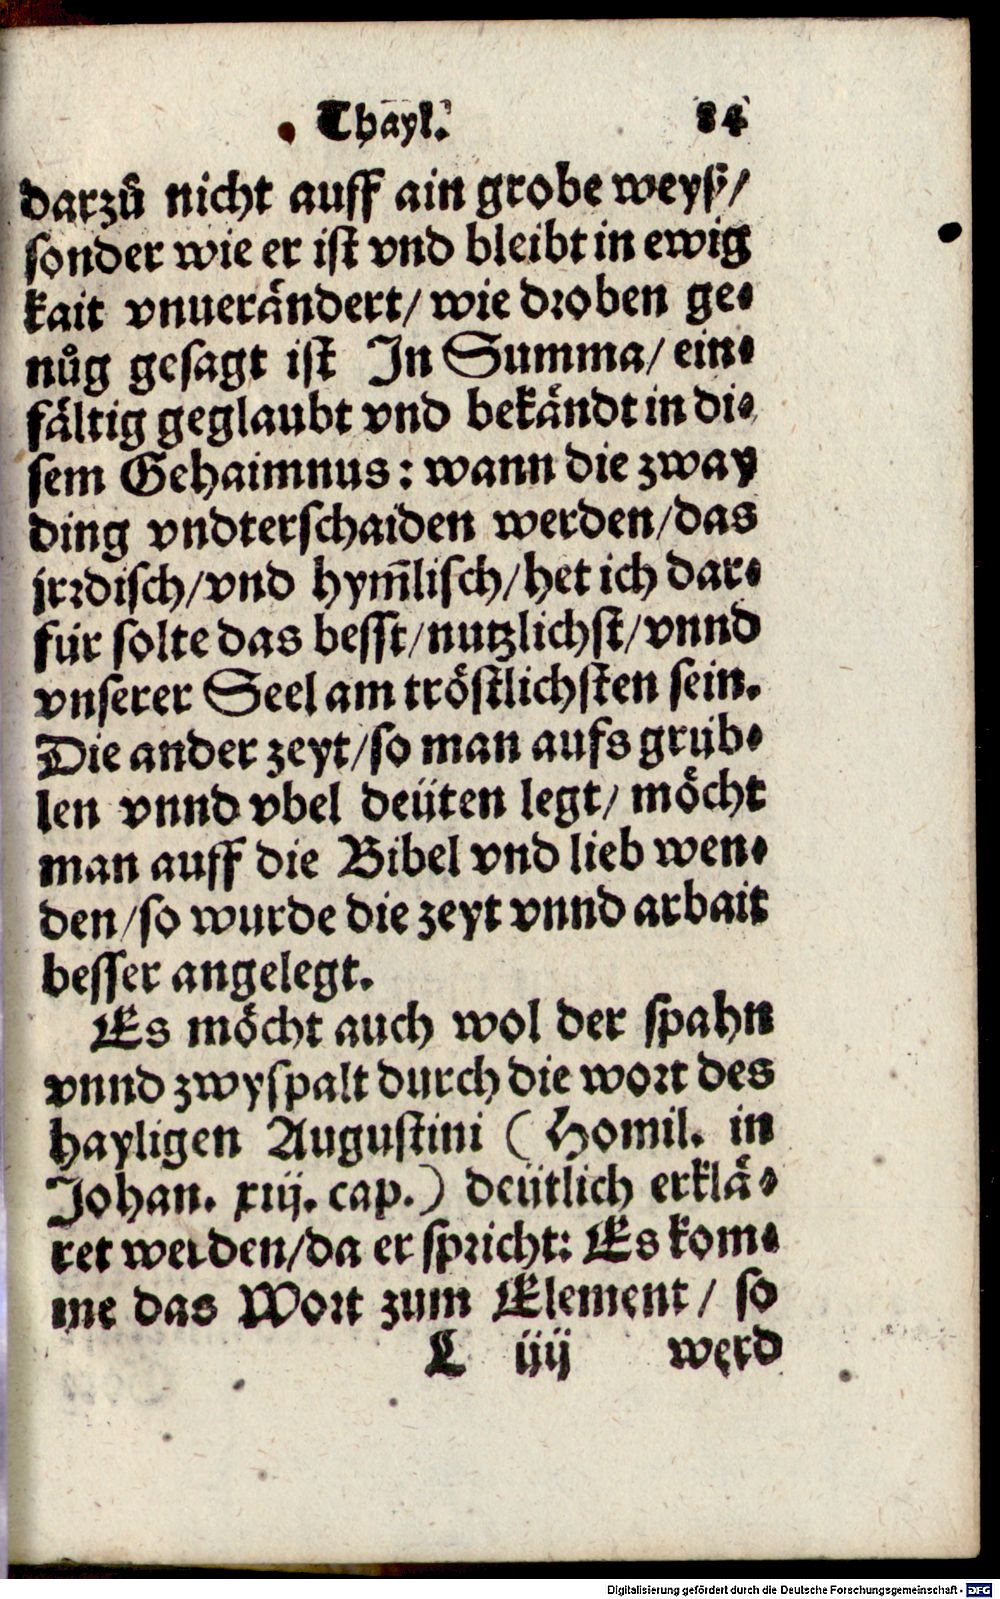 Thayl. 84
darzů nicht auff ain grobe weyß/
sonder wie er ist vnd bleibt in ewig
kait vnuerändert/ wie droben ge-
nůg gesagt ist In Summa/ ein-
fältig geglaubt vnd bekändt in di-
sem Gehaimnus: wann die zway
ding vndterschaiden werden/das
jrrdisch/vnd hym̃lisch/het ich dar-
für solte das besst/nutzlichst/vnnd
vnserer Seel am tröstlichsten sein.
Die ander zeyt/so man aufs grüb-
len vnnd vbel deüten legt/ möcht
man auff die Bibel vnd lieb wen-
den/so wurde die zeyt vnnd arbait
besser angelegt.
Es möcht auch wol der spahn
vnnd zwyspalt durch die wort des
hayligen Augustini (Homil. in
Johan. xiij. cap.) deütlich erklä-
ret werden/da er spricht: Es kom-
me das Wort zum Element/ so
L iiij werd
Digitalisierung gefördert durch die Deutsche Forschungsgemeinschaft - DFG